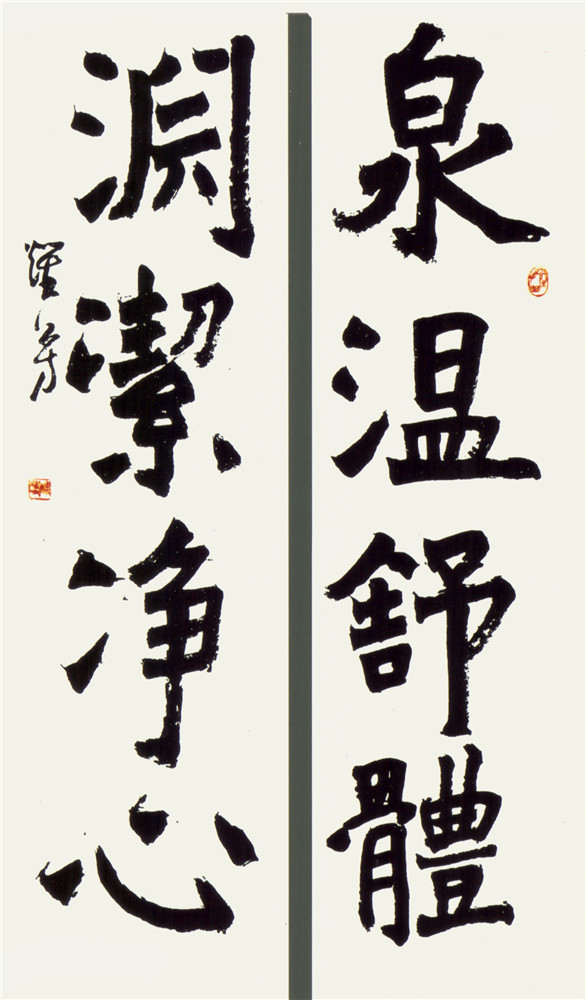 泉温舒體
澗潔净心